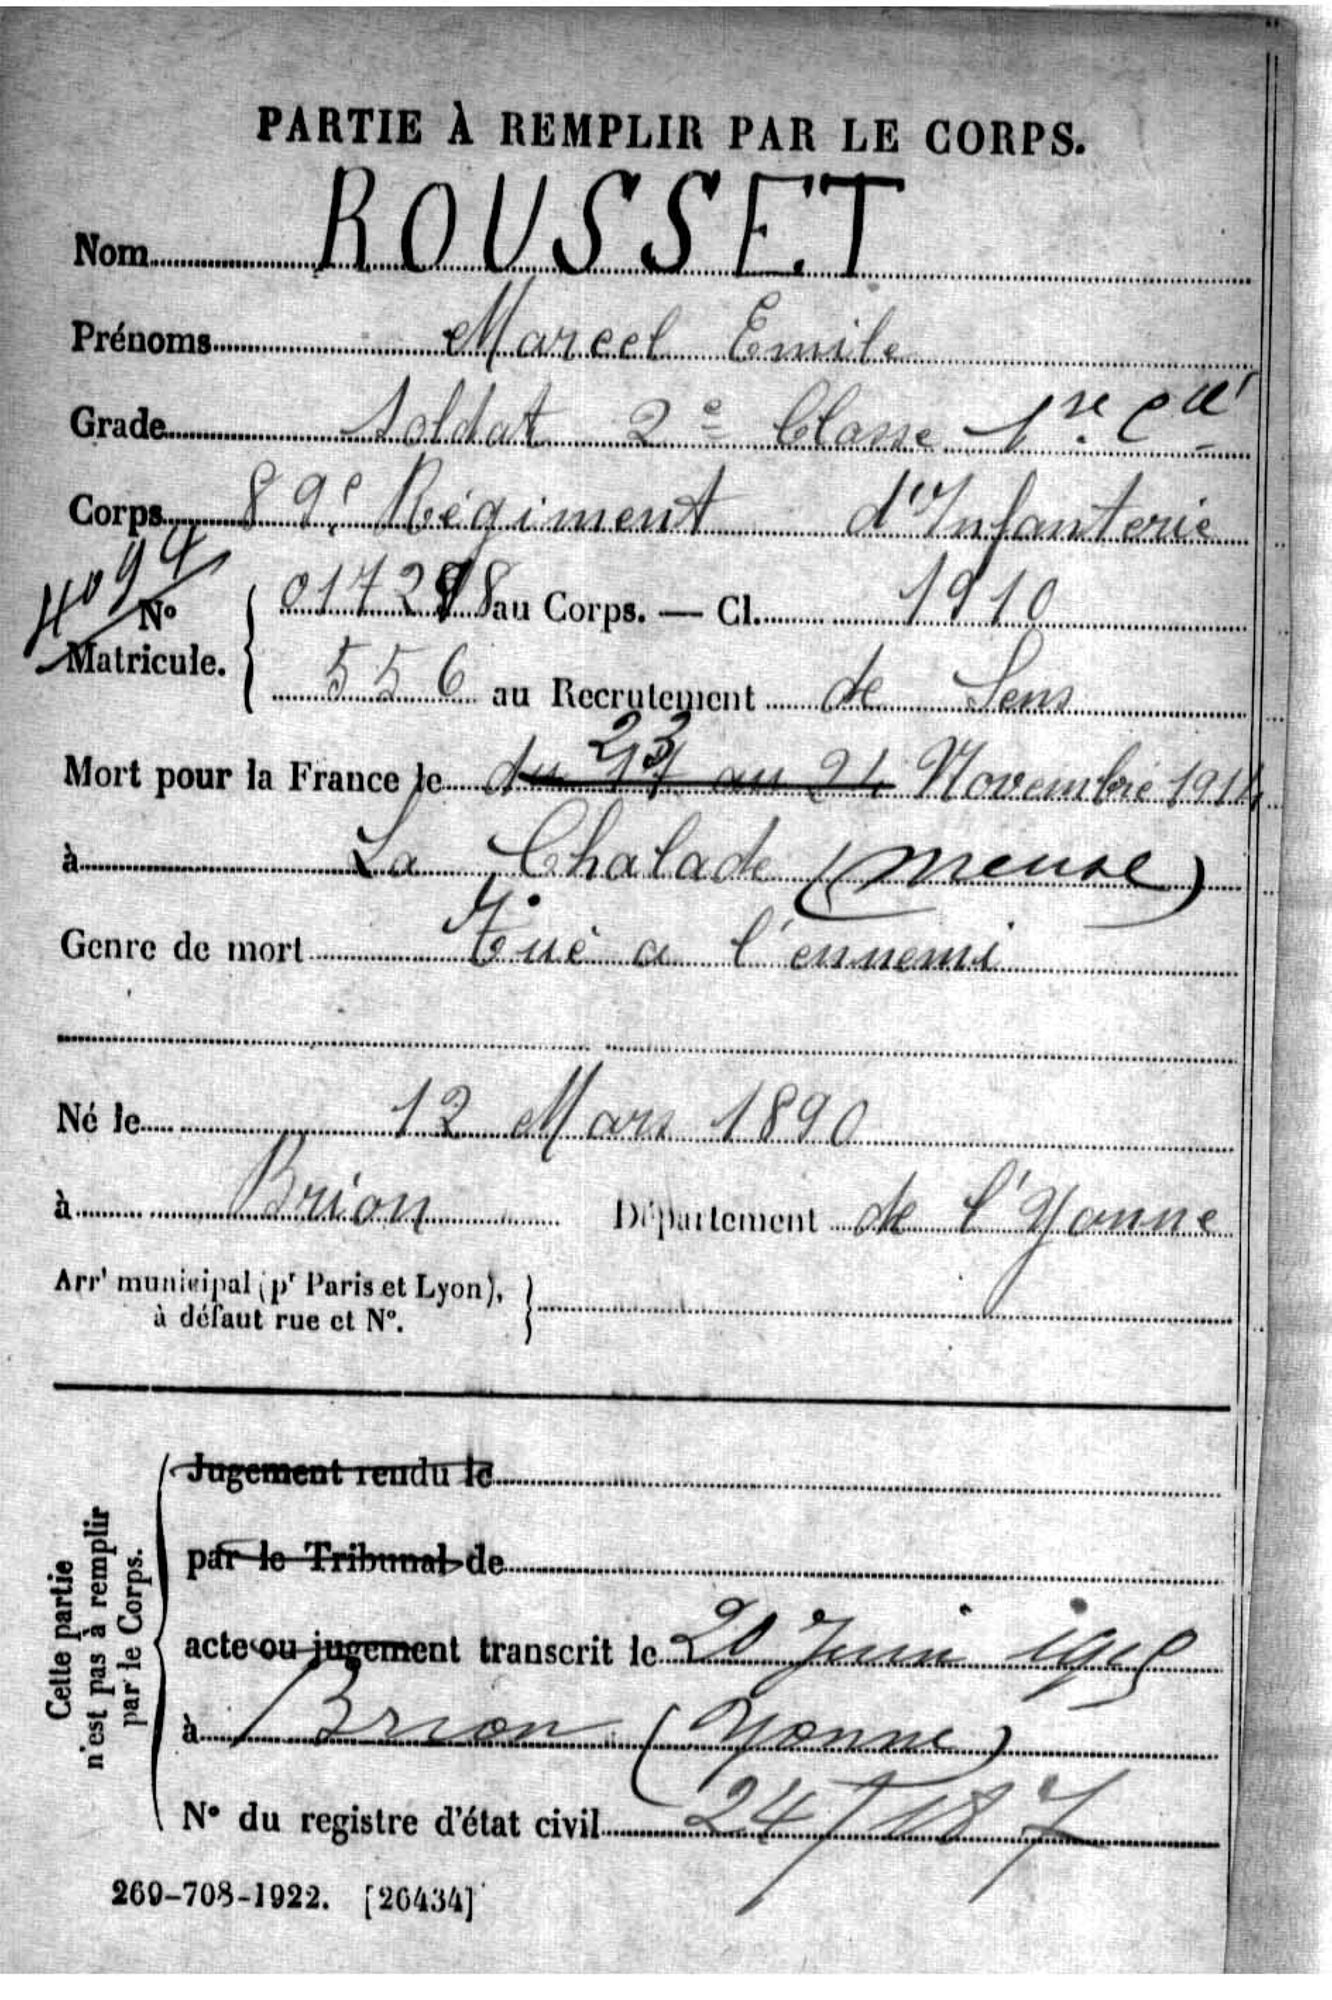 PARTIE À REMPLIR PAR LE CORPS.
Nom ROUSSET
Prénoms Marcel Emile
Grade Soldat 2e Classe 1re Cie
Corps 89e Régiment d'Infanterie
4094
No Matricule. { 017298 au Corps. — Cl. 1910
556 au Recrutement de Sens
23
Mort pour la France le du 17 au 24 Novembre 1914
à La Chalade (Meuse)
Genre de mort Tué a l'ennemi
Né le 12 Mars 1890
à Brion Département de l'Yonne
Arrt municipal (pr Paris et Lyon),
à défaut rue et No.
Cette partie
n'est pas à remplir
par le Corps.
Jugement rendu le
par le Tribunal de
acte ou jugement transcrit le 20 Juin 1915
à Brion (Yonne)
No du registre d'état civil 24/187
269-708-1922. [26434]